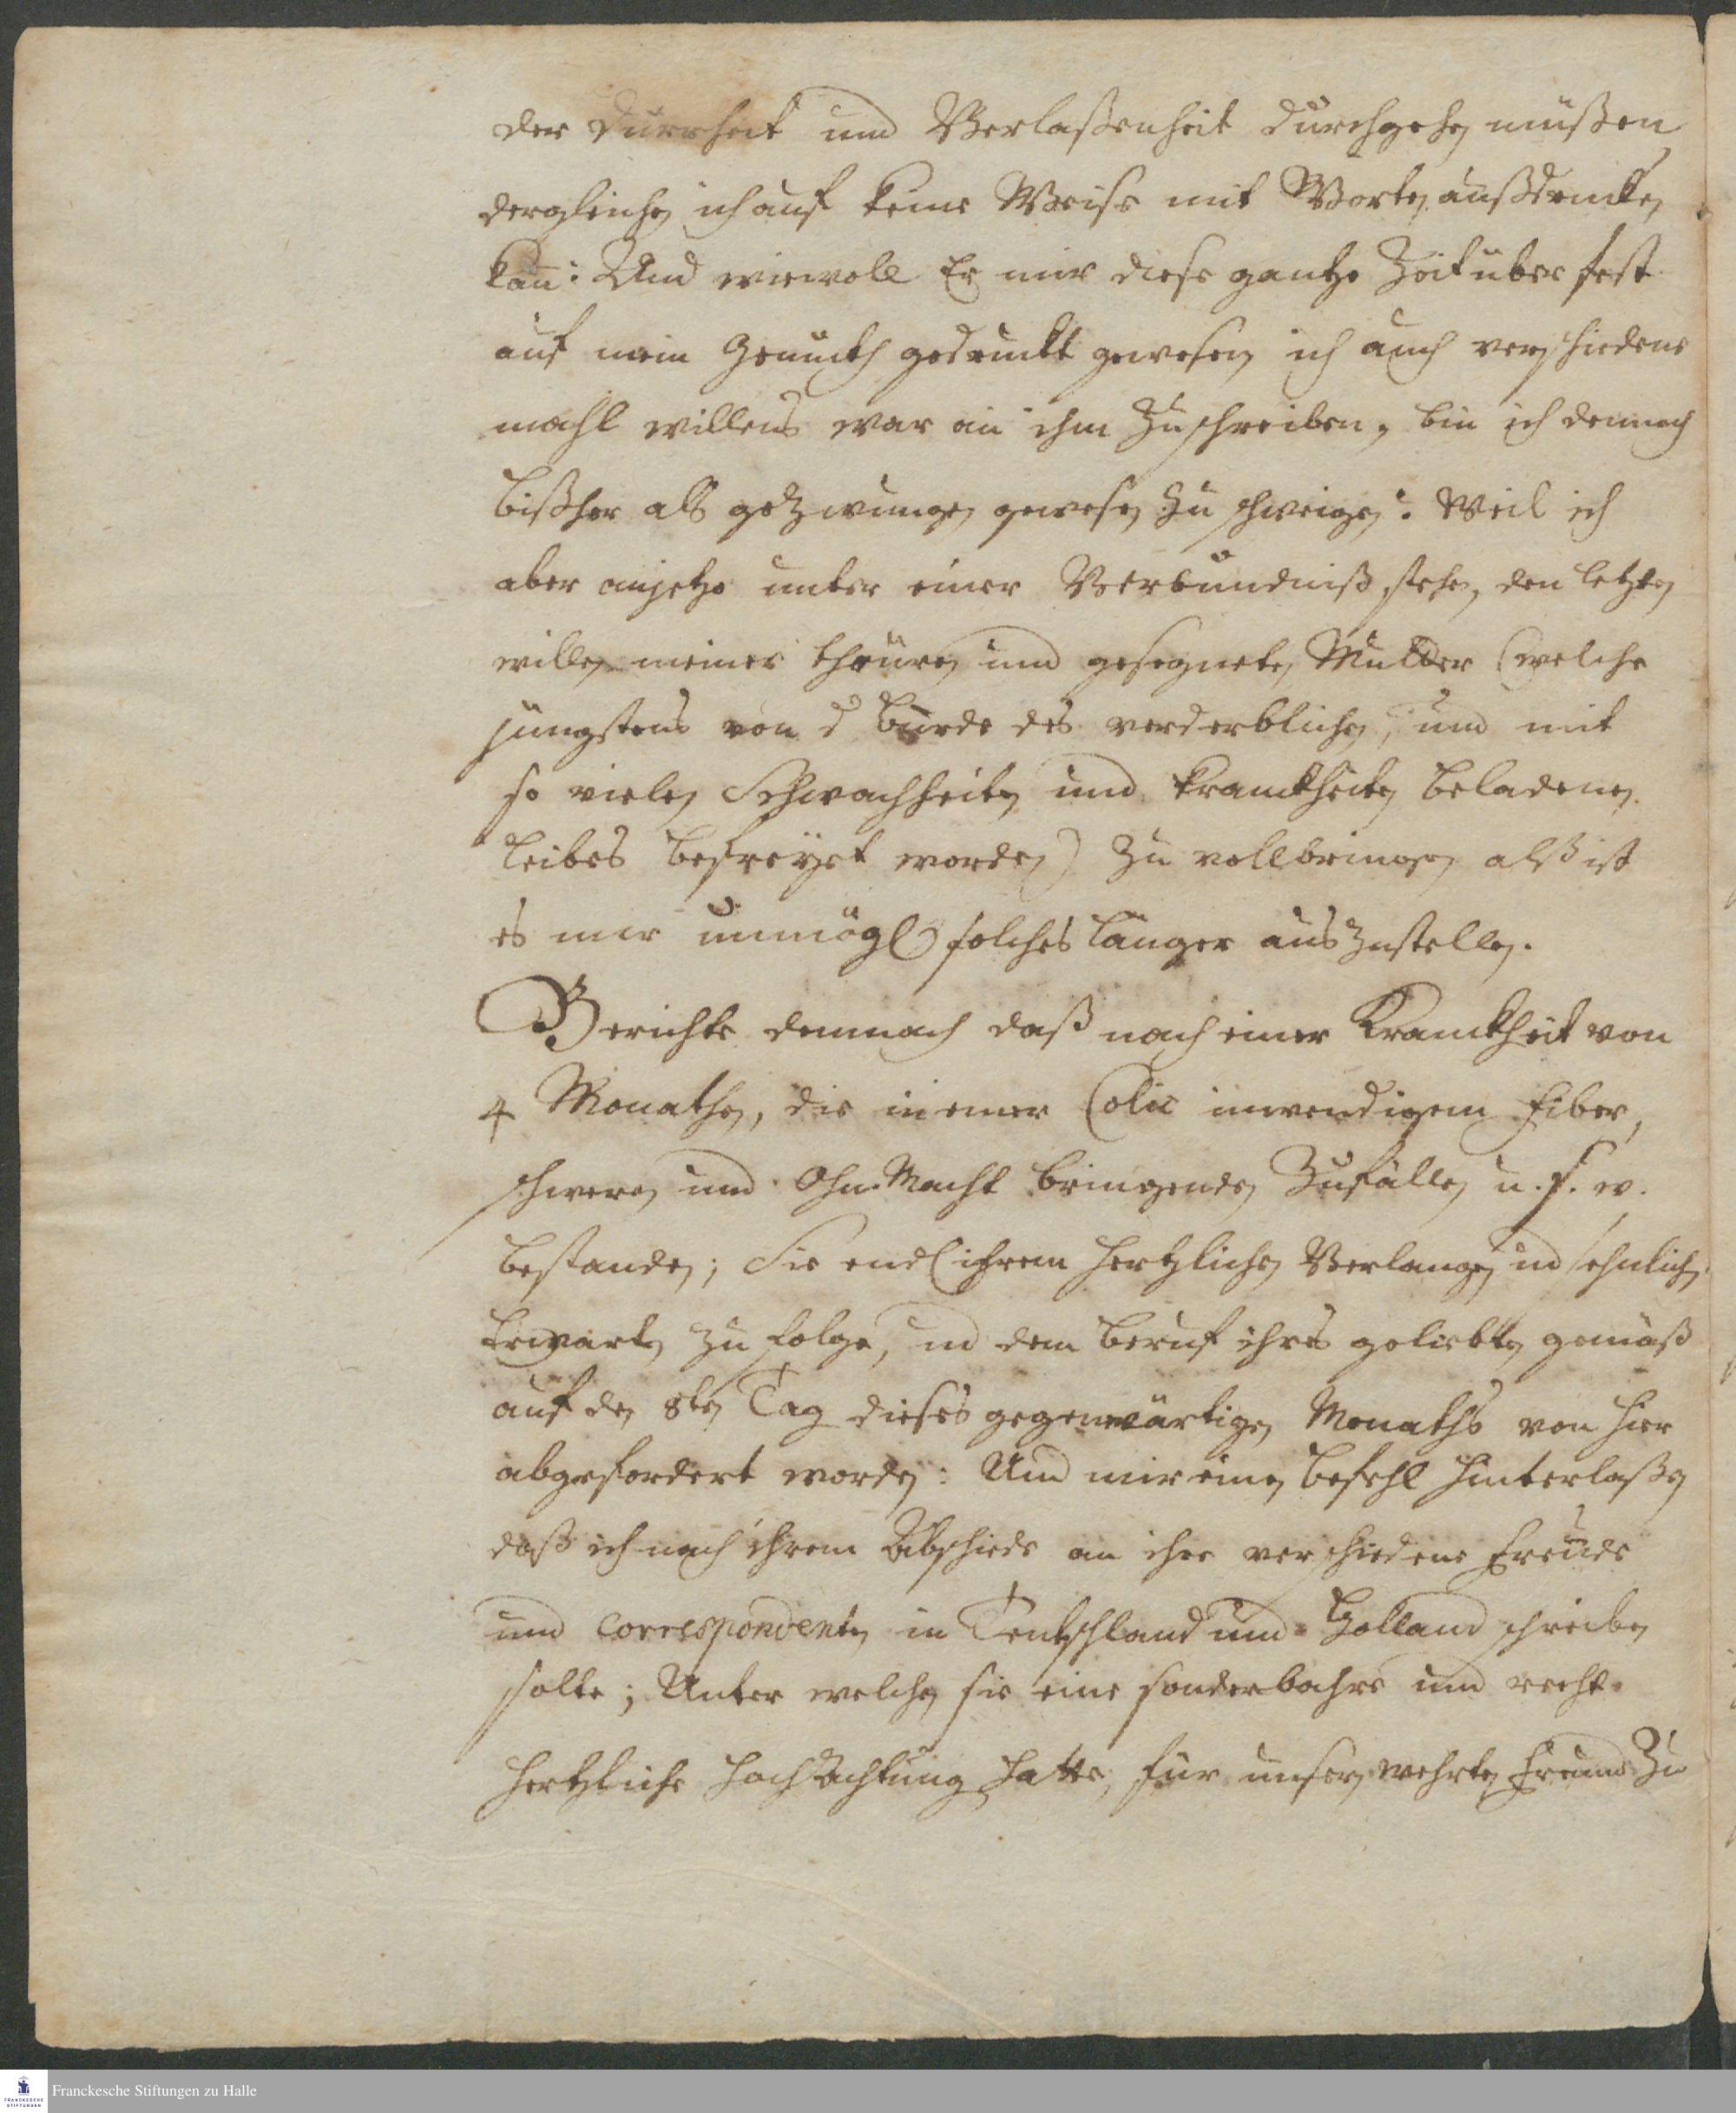 der Durrheit und Verlaßenheit durchgehen müßen
dergleichen ich auf keine Weise mit Worten außdrucken
kan̄: Und wiewoll Er mir diese gantze Zeit über fest
auf mein Gemüth gedruckt gewesen ich auch verschiedene
mahl willens war an ihm zu schreiben, bin ich dennoch
bißher als gezwungen gewesen zu schweigen: Weil ich
aber anjetzo unter einer Verbündniß stehe, den letzten
willen meiner theuren und gesegneten Mutter (welche
jüngstens von d bürde des verderblichen, und mit
so vielen Schwachheiten und kranckheiten beladenen
leibes befreyet worden) zu vollbringen alß ist
es mir unmögl solches länger auszustellen.
Berichte demnach daß nach einer Kranckheit von
4 Monathen, die in einer Colic inwendigem fieber,
schweren und OhnMacht bringenden Zufällen u. s. w.
bestanden; Sie endl ihrem hertzlichen Verlangen ud sehnlichen
Erwarten zu folge, ud dem beruf ihres geliebten gemäß
auf den 8ten Tag dieses gegenwärtigen Monaths von hier
abgefordert worden: Und mir einen befehl hinterlaßen
daß ich nach ihrem Abschiede an ihre verschiedene freunde
und Correspondenten in Teutschland und Holland schreiben
solte; Unter welchen sie eine sonderbahre und recht
hertzliche hochachtung hatte, für unsern wehrten freund Zu
Franckesche Stiftungen zu Halle
FRANCKESCHE
STIFTUNGEN